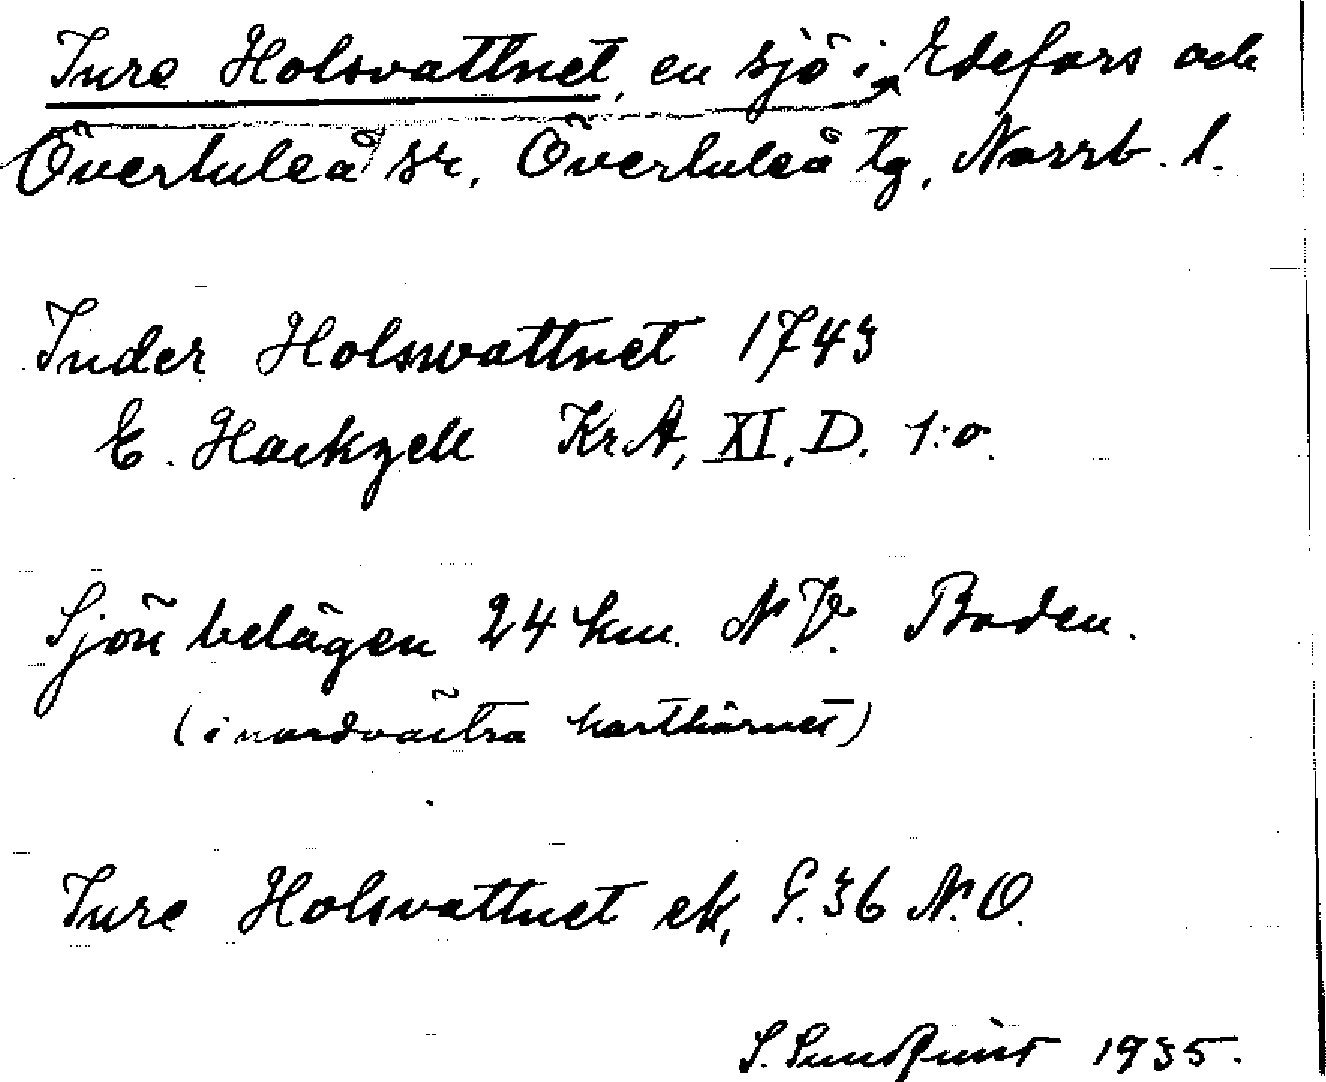 Inre Holsvattnet, en sjö i Edefors och
Överluleå sr, Överluleå tg, Norrb. l.
Inder Holswattnet 1743
E. Hackzell KrA, XI, D. 1:o.
Sjön belägen 24 km. N V. Boden.
(i nordvästra karthörnet)
Inre Holsvattnet ek, G. 36 N.O.
S. Sundqvist 1935.